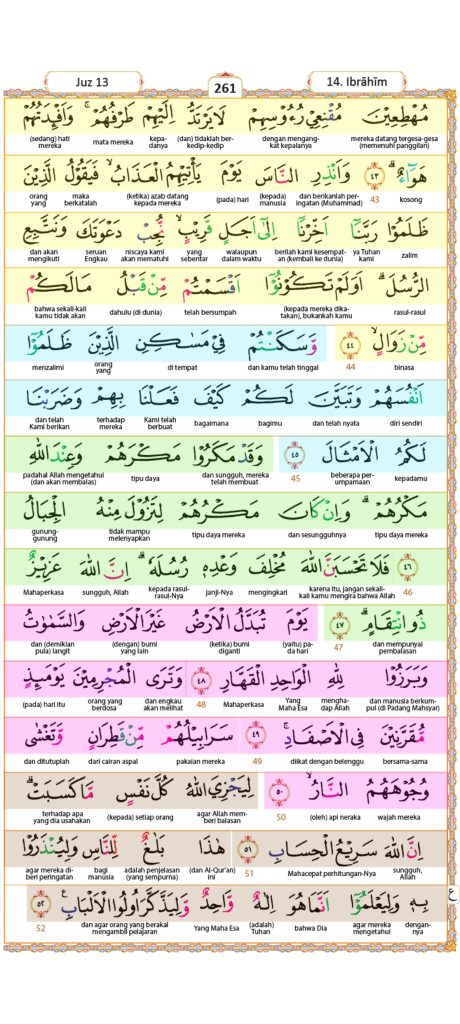 Juz 13
261
14. Ibrāhīm
مُهْطِعِيْنَ مُقْنِعِيْ رُءُوْسِهِمْ لَا يَرْتَدُّ اِلَيْهِمْ طَرْفُهُمْ ۚ وَاَفْـِٕدَتُهُمْ
mereka datang tergesa-gesa (memenuhi panggilan) dengan mengangkat kepalanya (dan) tidaklah berkedip-kedip kepadanya mata mereka (sedang) hati mereka
هَوَاۤءٌ ۗ ٤٣ وَاَنْذِرِ النَّاسَ يَوْمَ يَأْتِيْهِمُ الْعَذَابُ فَيَقُوْلُ الَّذِيْنَ
kosong 43 dan berikanlah peringatan (Muhammad) (kepada) manusia (pada) hari (ketika) azab datang kepada mereka maka berkatalah orang yang
ظَلَمُوْا رَبَّنَآ اَخِّرْنَآ اِلٰٓى اَجَلٍ قَرِيْبٍۙ نُّجِبْ دَعْوَتَكَ وَنَتَّبِعِ
zalim ya Tuhan kami berilah kami kesempatan (kembali ke dunia) walaupun dalam waktu yang sebentar niscaya kami akan mematuhi seruan Engkau dan akan mengikuti
الرُّسُلَ ۗ اَوَلَمْ تَكُوْنُوْٓا اَقْسَمْتُمْ مِّنْ قَبْلُ مَا لَكُمْ
rasul-rasul (kepada mereka dikatakan), bukankah kamu telah bersumpah dahulu (di dunia) bahwa sekali-kali kamu tidak akan
مِّنْ زَوَالٍۙ ٤٤ وَّسَكَنْتُمْ فِيْ مَسٰكِنِ الَّذِيْنَ ظَلَمُوْٓا
binasa 44 dan kamu telah tinggal di tempat orang yang menzalimi
اَنْفُسَهُمْ وَتَبَيَّنَ لَكُمْ كَيْفَ فَعَلْنَا بِهِمْ وَضَرَبْنَا
diri sendiri dan telah nyata bagimu bagaimana Kami telah berbuat terhadap mereka dan telah Kami berikan
لَكُمُ الْاَمْثَالَ ٤٥ وَقَدْ مَكَرُوْا مَكْرَهُمْ وَعِنْدَ اللّٰهِ
kepadamu beberapa perumpamaan 45 dan sungguh, mereka telah membuat tipu daya padahal Allah mengetahui (dan akan membalas)
مَكْرُهُمْ ۗ وَاِنْ كَانَ مَكْرُهُمْ لِتَزُوْلَ مِنْهُ الْجِبَالُ
tipu daya mereka dan sesungguhnya tipu daya mereka tidak mampu melenyapkan gunung-gunung
٤٦ فَلَا تَحْسَبَنَّ اللّٰهَ مُخْلِفَ وَعْدِهٖ رُسُلَهٗ ۗ اِنَّ اللّٰهَ عَزِيْزٌ
46 karena itu, jangan sekali-kali kamu mengira bahwa Allah mengingkari janji-Nya kepada rasul-rasul-Nya sungguh, Allah Mahaperkasa
ذُو انْتِقَامٍۗ ٤٧ يَوْمَ تُبَدَّلُ الْاَرْضُ غَيْرَ الْاَرْضِ وَالسَّمٰوٰتُ
dan mempunyai pembalasan 47 (yaitu) pada hari (ketika) bumi diganti (dengan) bumi yang lain dan (demikian pula) langit
وَبَرَزُوْا لِلّٰهِ الْوَاحِدِ الْقَهَّارِ ٤٨ وَتَرَى الْمُجْرِمِيْنَ يَوْمَىِٕذٍ
dan manusia berkumpul (di Padang Mahsyar) menghadap Allah Yang Maha Esa Mahaperkasa 48 dan engkau akan melihat orang yang berdosa (pada) hari itu
مُّقَرَّنِيْنَ فِى الْاَصْفَادِۚ ٤٩ سَرَابِيْلُهُمْ مِّنْ قَطِرَانٍ وَّتَغْشٰى
bersama-sama diikat dengan belenggu 49 pakaian mereka dari cairan aspal dan ditutuplah
وُجُوْهَهُمُ النَّارُۙ ٥٠ لِيَجْزِيَ اللّٰهُ كُلَّ نَفْسٍ مَّا كَسَبَتْ ۗ
wajah mereka (oleh) api neraka 50 agar Allah memberi balasan (kepada) setiap orang terhadap apa yang dia usahakan
اِنَّ اللّٰهَ سَرِيْعُ الْحِسَابِ ٥١ هٰذَا بَلٰغٌ لِّلنَّاسِ وَلِيُنْذَرُوْا
sungguh, Allah Mahacepat perhitungan-Nya 51 (dan Al-Qur'an) ini adalah penjelasan (yang sempurna) bagi manusia agar mereka diberi peringatan
بِهٖ وَلِيَعْلَمُوْٓا اَنَّمَا هُوَ اِلٰهٌ وَّاحِدٌ وَّلِيَذَّكَّرَ اُولُوا الْاَلْبَابِ ࣖ ٥٢ ع
dengannya agar mereka mengetahui bahwa Dia (adalah) Tuhan Yang Maha Esa dan agar orang yang berakal mengambil pelajaran 52